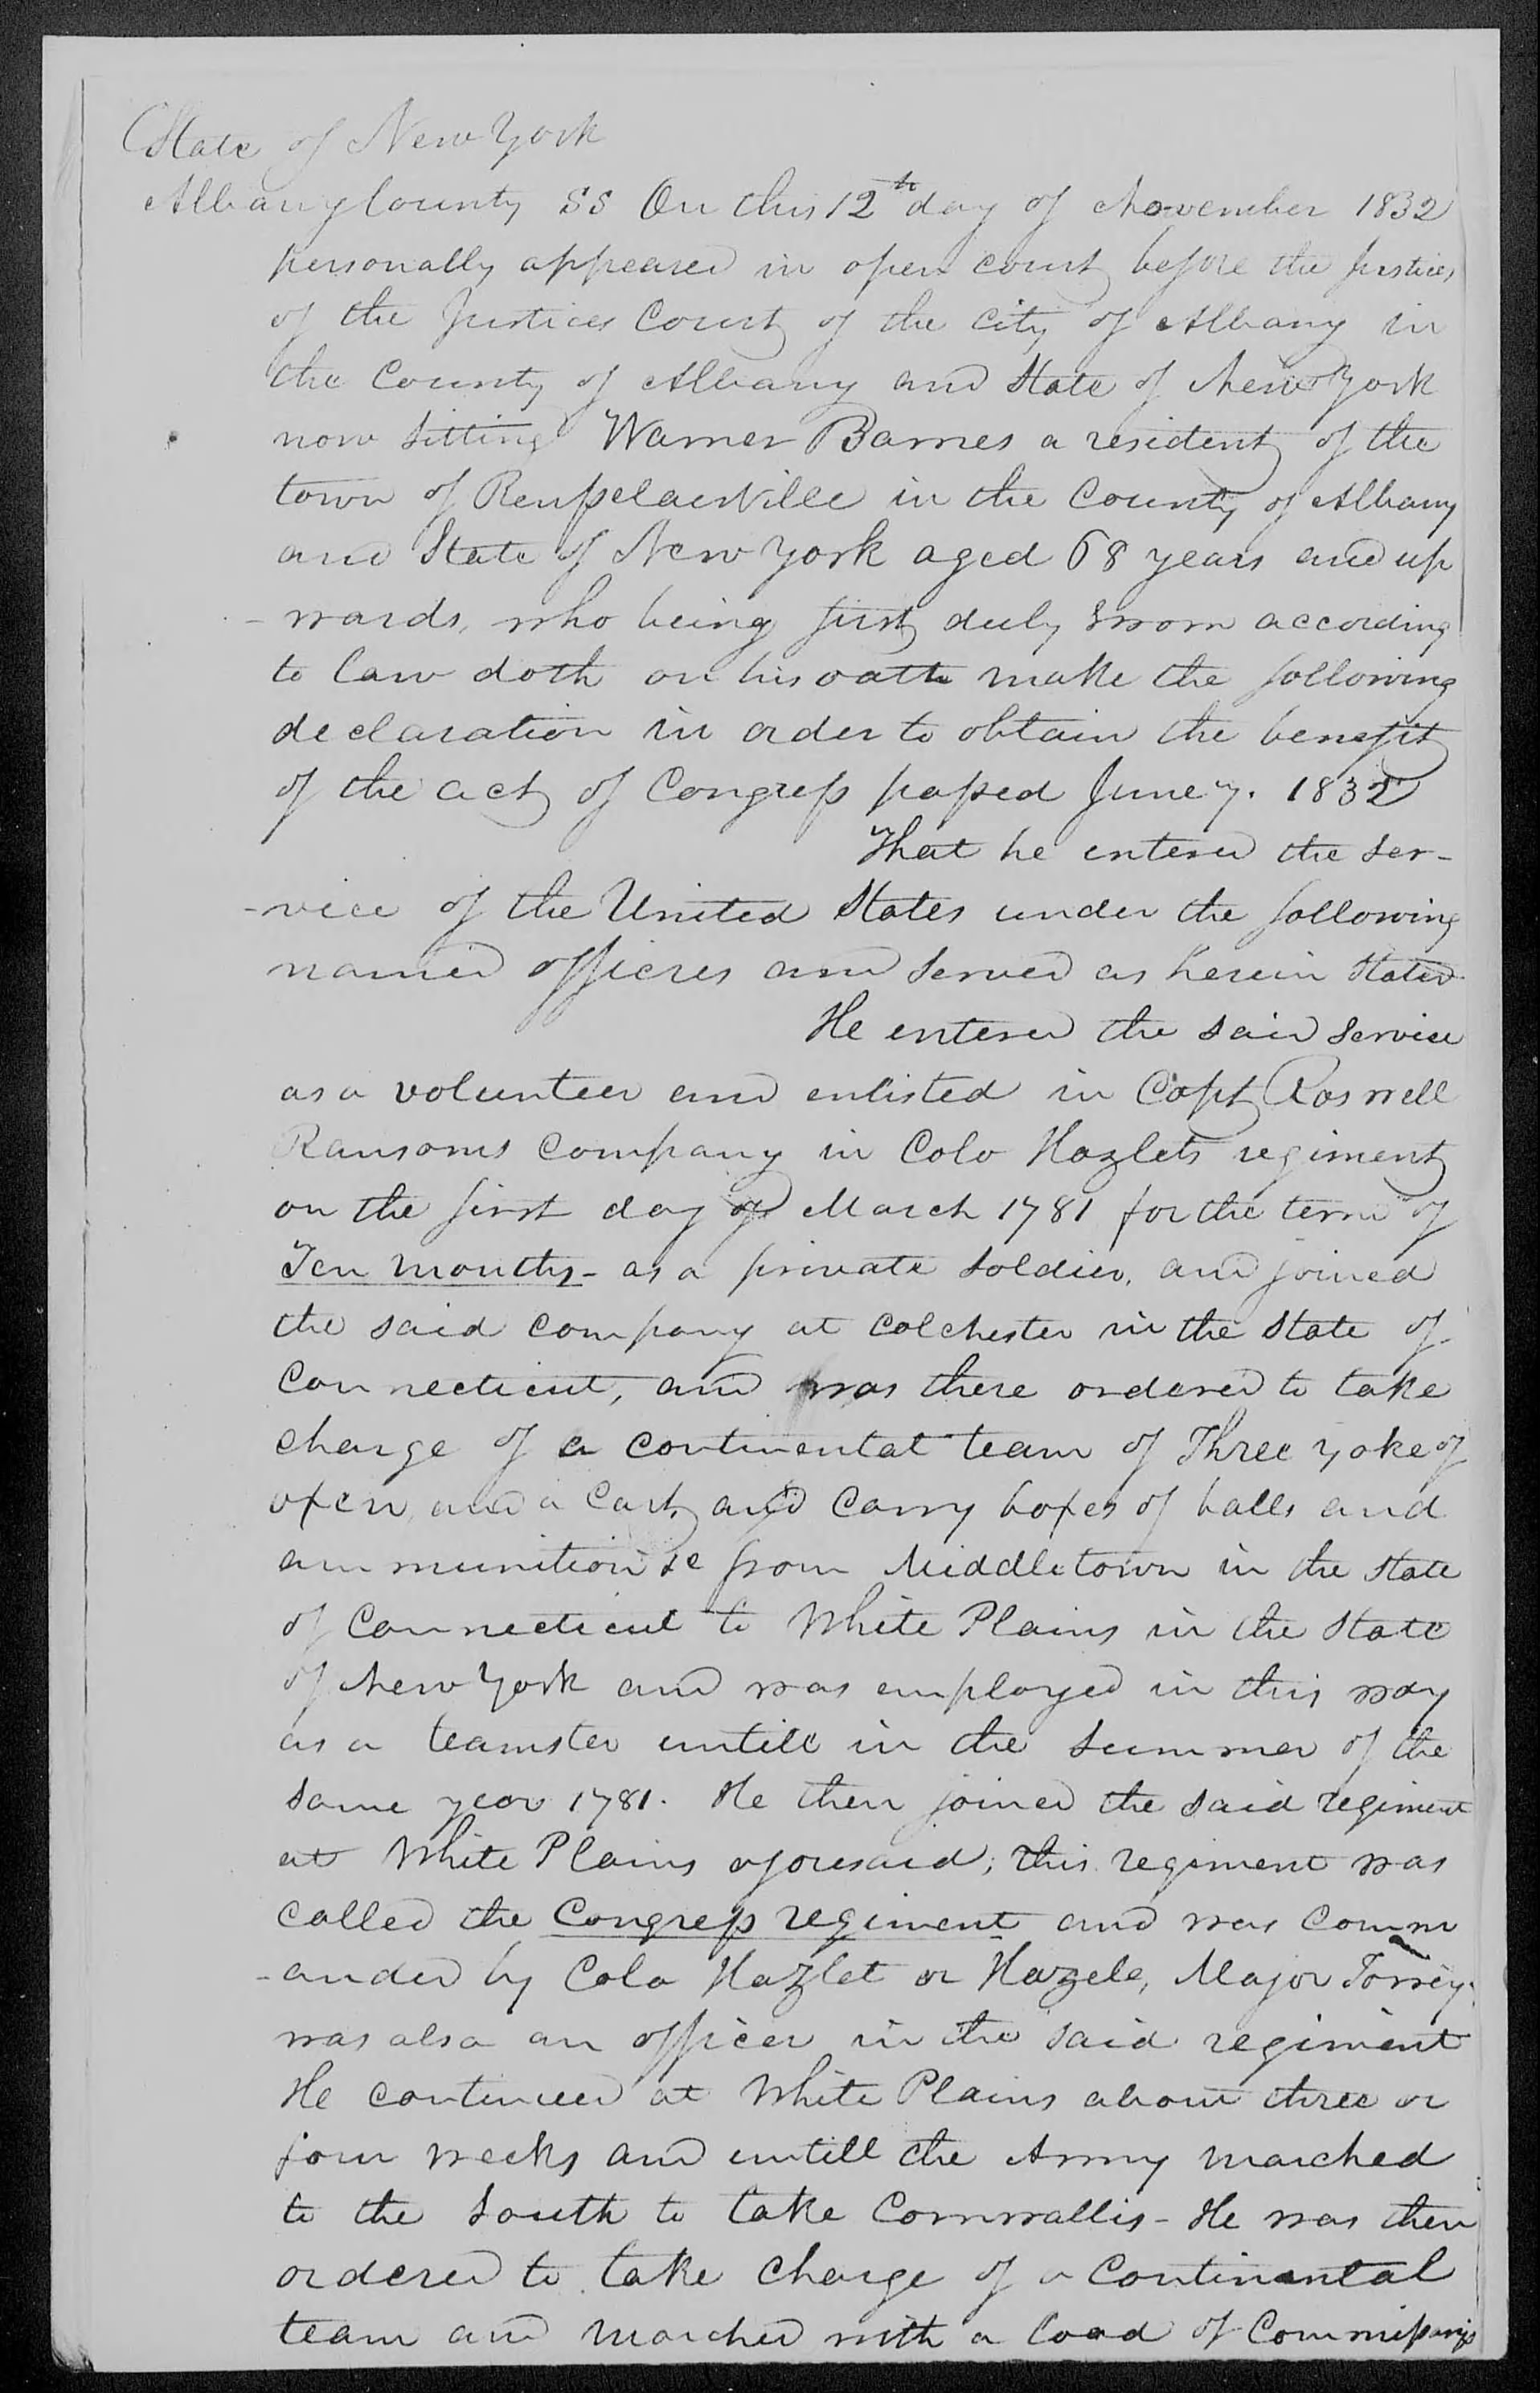 State of New York
Albany County SS On this 12th day of November 1832
personally appeared in open court before the Justices
of the Justices Court of the City of Albany in
the County of Albany and State of New York
now sitting Warner Barnes a resident of the
town of Rensselaerville in the County of Albany
and State of New York aged 68 years and up
- wards, who being first duly sworn according
to law doth on his oath make the following
declaration in order to obtain the benefit
of the act of Congress passed June 7. 1832
That he entered the ser-
-vice of the United States under the following
named officers and served as herein stated
He entered the said service
as a volunteer and enlisted in Capt Roswell
Ransoms company in Colo Hazlets regiment
on the first day of March 1781 for the term of
Ten months - as a private soldier, and joined
the said company at Colchester in the State of
Connecticut, and was there ordered to take
charge of a continental team of Three yoke of
oxen, and a Cart, and carry boxes of balls and
ammunition &c from Middletown in the State
of Connecticut to White Plains in the State
of New York and was employed in this way
as a teamster untill in the summer of the
same year 1781. He then joined the said regiment
at White Plains aforesaid; this regiment was
called the Congress regiment and was comm
- anded by Colo Hazlet or Hazele, Major Torrey
was also an officer in the said regiment
He continued at White Plains about three or
four weeks and untill the Army marched
to the South to take Cornwallis - He was then
ordered to take charge of a Continental
team and marched with a load of Commissarys